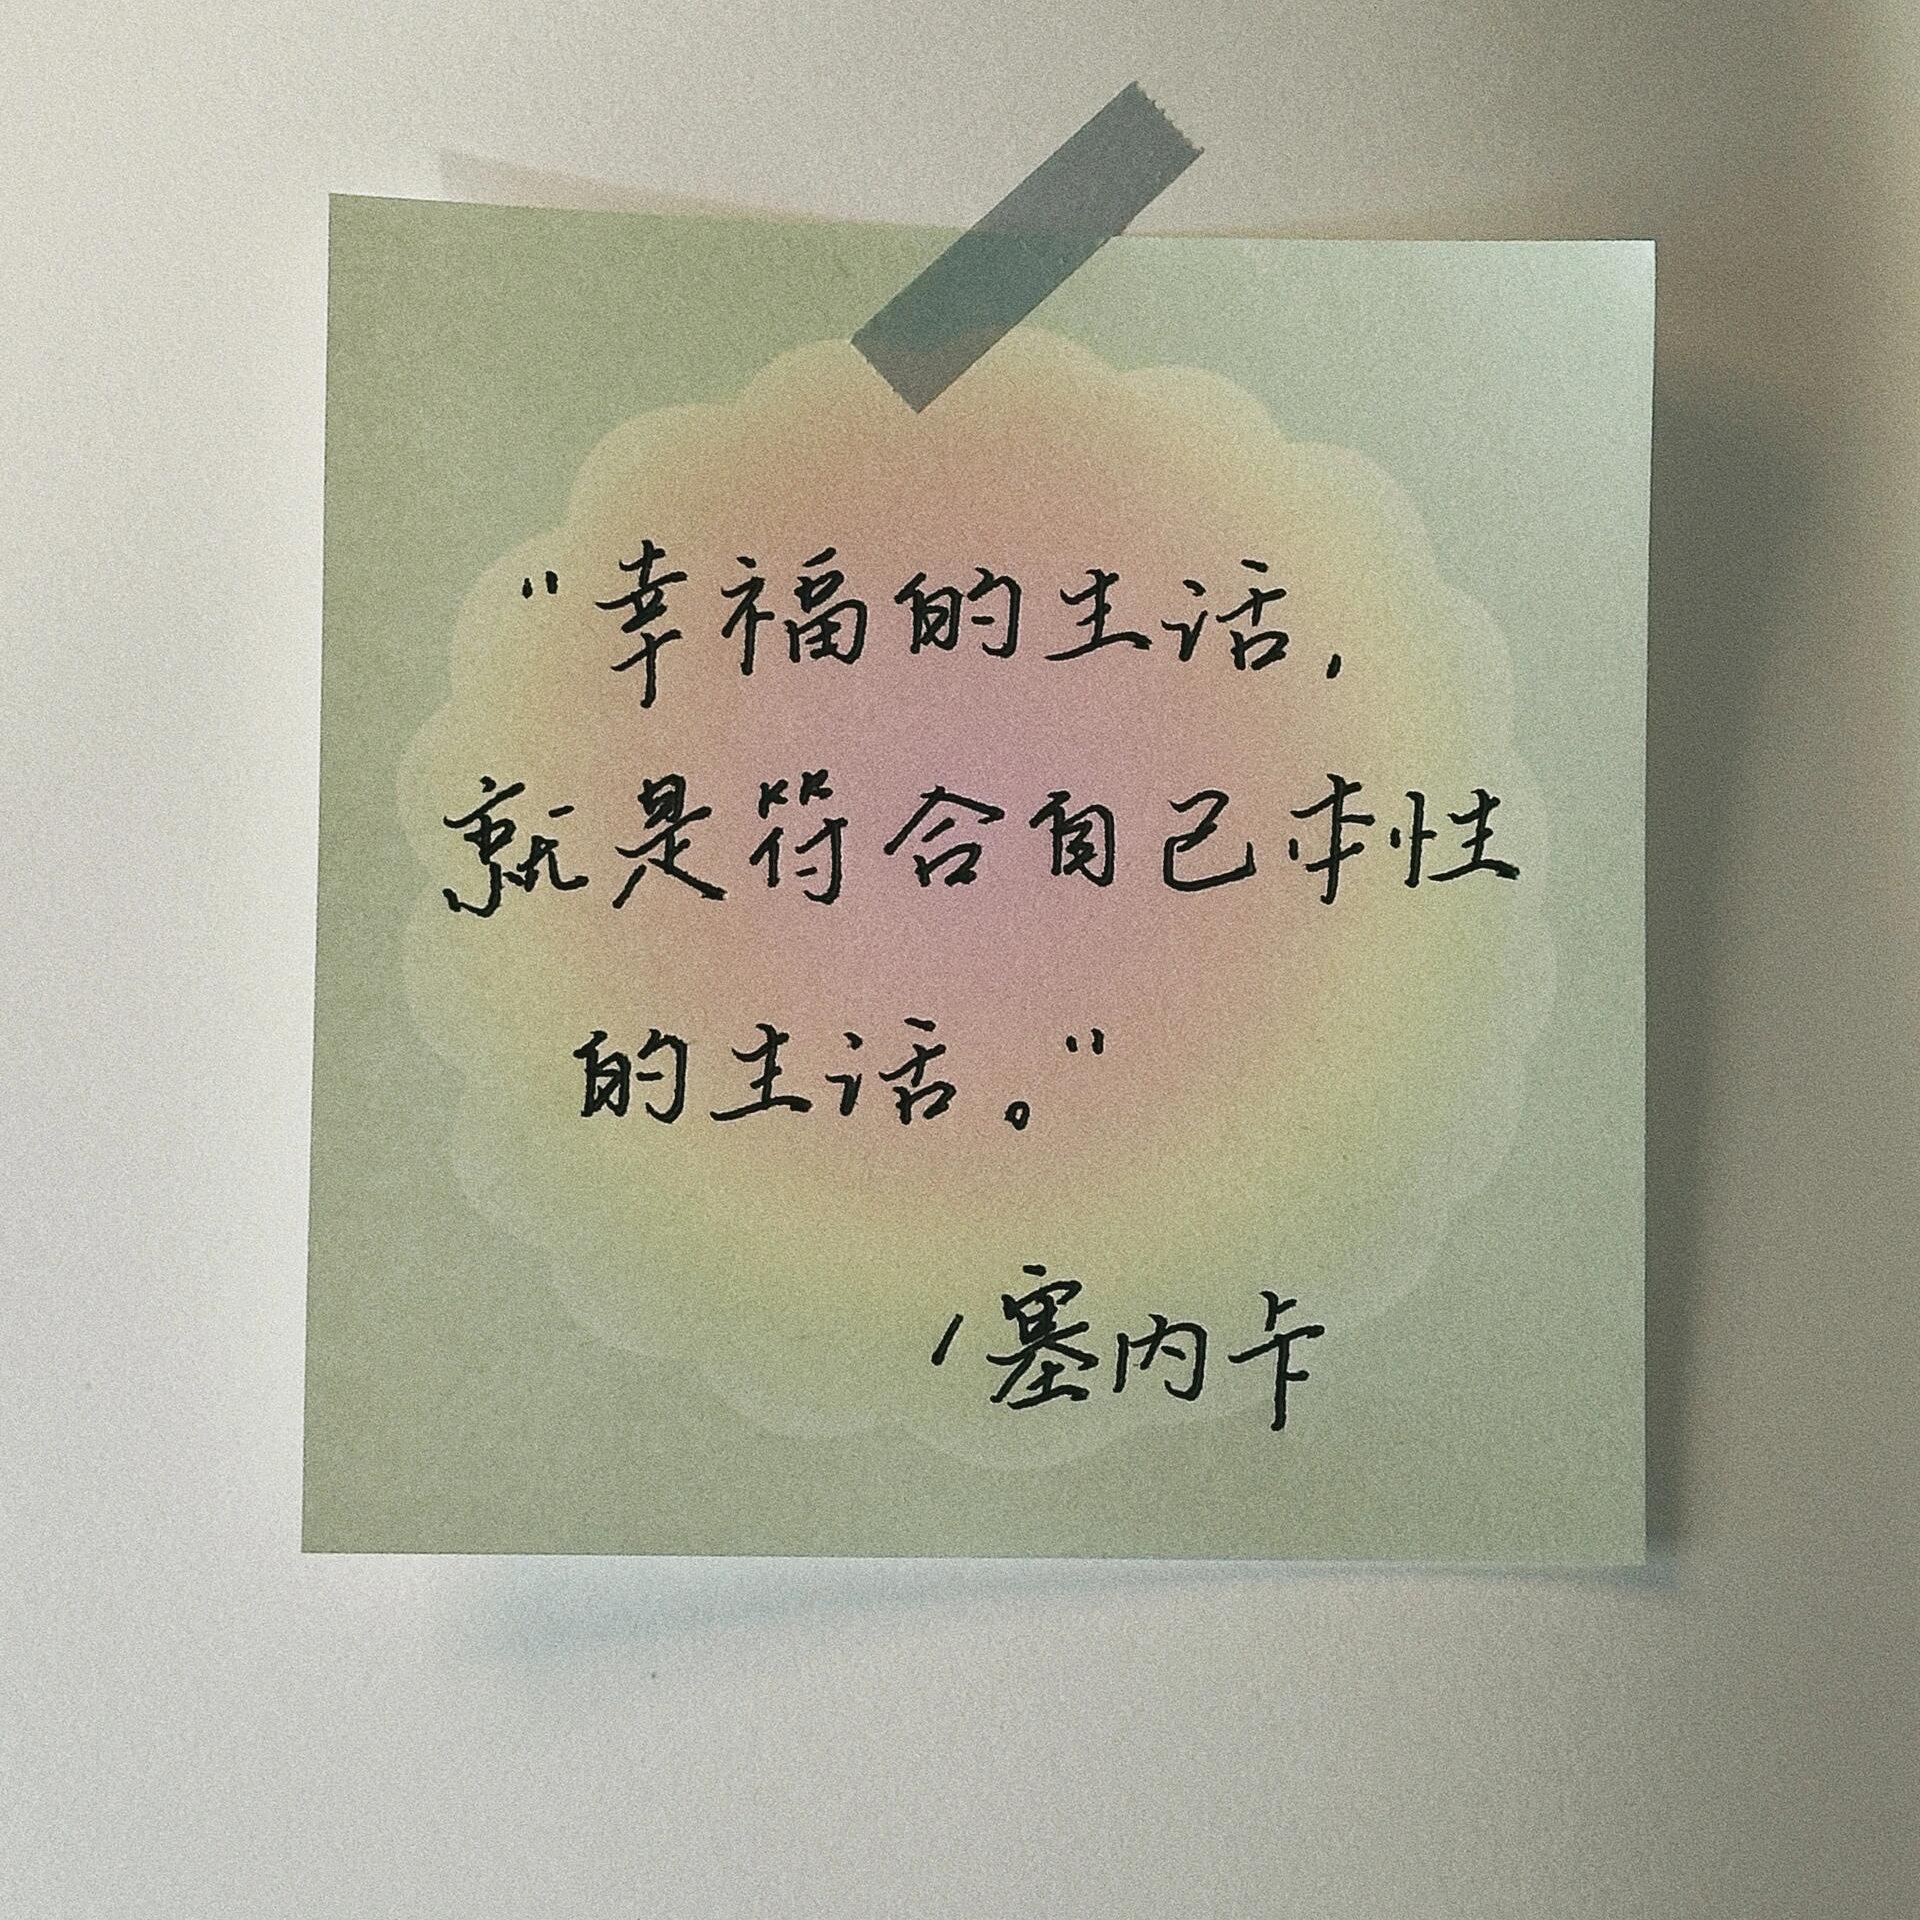 "幸福的生活，
就是符合自己本性
的生活。"
/塞内卡